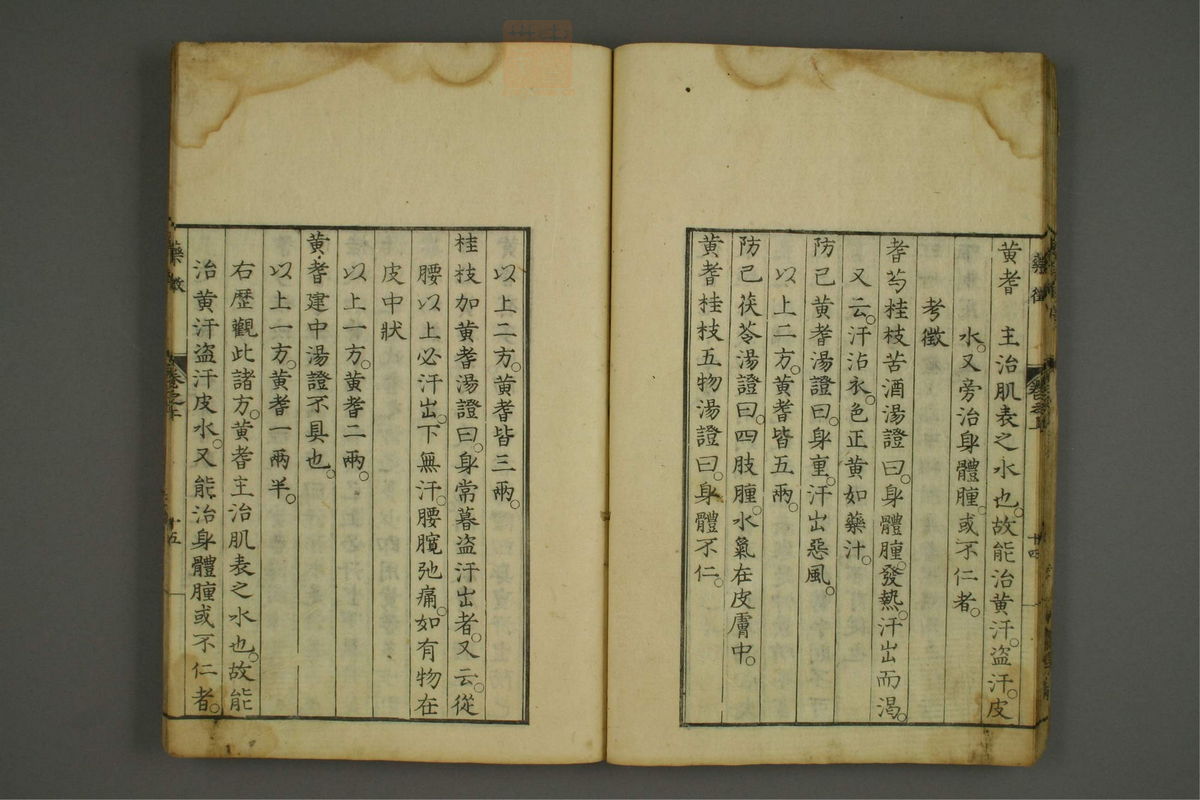 黃耆 主治肌表之水也。故能治黃汗。盜汗。皮
水。又旁治身體腫。或不仁者。
考徵
耆芍桂枝苦酒湯證曰。身體腫。發熱。汗出而渴。
又云。汗沾衣。色正黃如藥汁。
防已黃耆湯證曰。身重。汗出惡風。
以上二方。黃耆皆五兩。
防已茯苓湯證曰。四肢腫。水氣在皮膚中。
黃耆桂枝五物湯證曰。身體不仁。
藥徵
十四
以上二方。黃耆皆三兩。
桂枝加黃耆湯證曰。身常暮盜汗出者。又云。從
腰以上必汗出。下無汗。腰髖弛痛。如有物在
皮中狀
以上一方。黃耆二兩。
黃耆建中湯證不具也。
以上一方。黃耆一兩半。
右歷觀此諸方。黃耆主治肌表之水也。故能
治黃汗盜汗皮水。又能治身體腫或不仁者。
藥徵
卷之上
十五